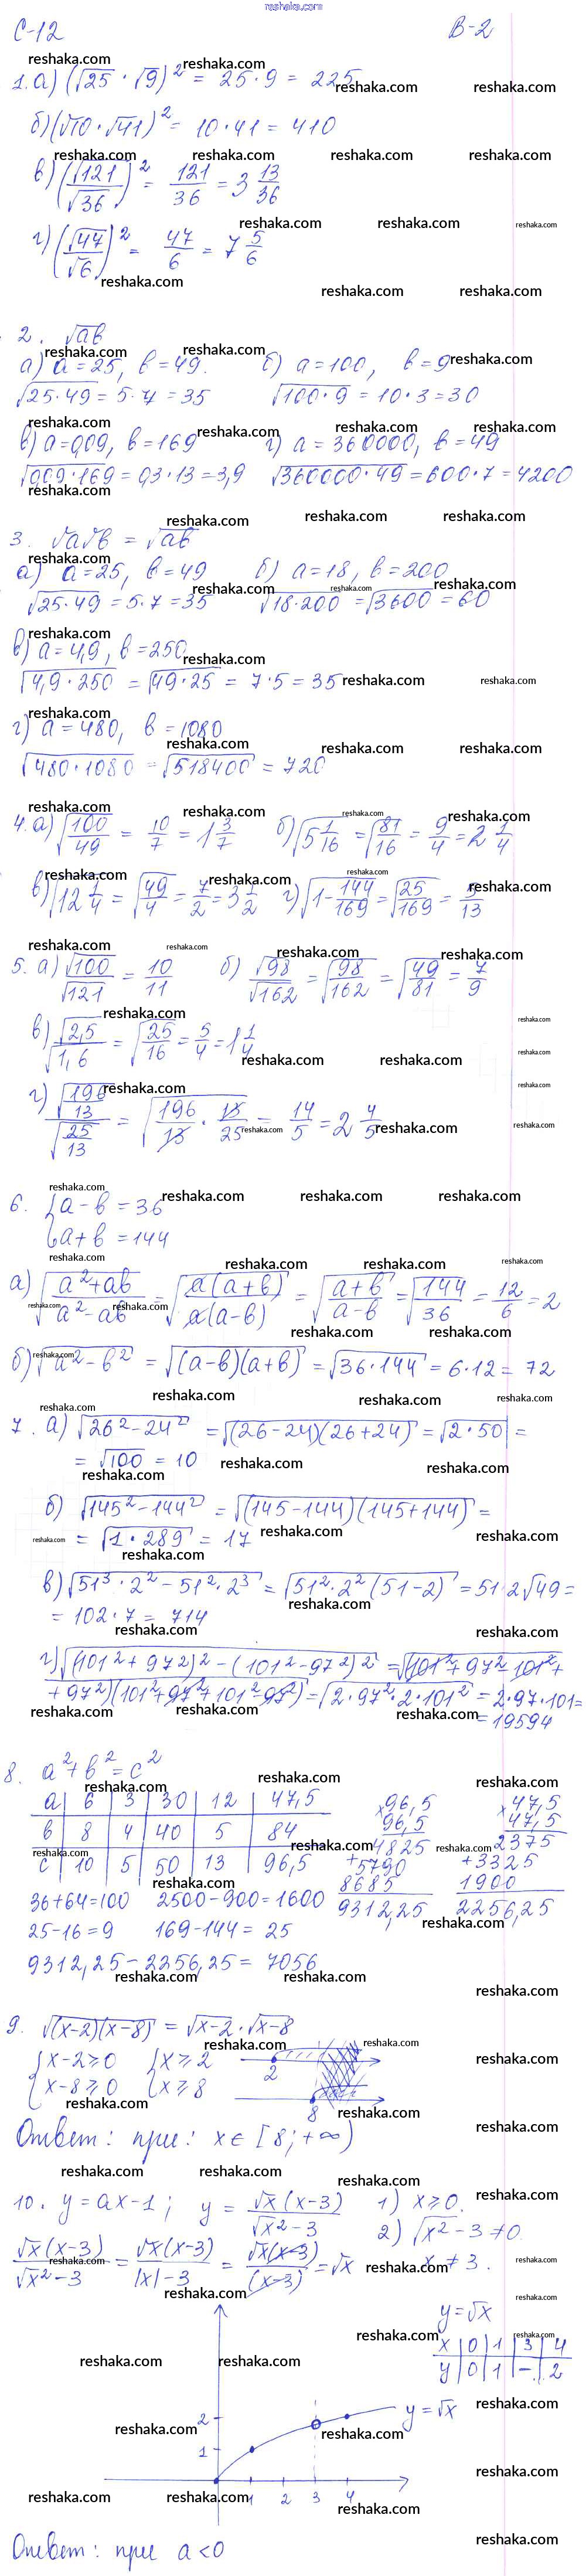 reshaka.com
С-12 В-2
1. а) (√25 · √9)² = 25·9 = 225
б) (√10 · √41)² = 10·41 = 410
в) (√121/√36)² = 121/36 = 3 13/36
г) (√47/√6)² = 47/6 = 7 5/6
2. √ab
а) a=25, b=49. б) a=100, b=9
√25·49 = 5·7 = 35 √100·9 = 10·3 = 30
в) a=0,09, b=169 г) a=360000, b=49
√0,09·169 = 0,3·13 = 3,9 √360000·49 = 600·7 = 4200
3. √a√b = √ab
а) a=25, b=49 б) a=18, b=200
√25·49 = 5·7 = 35 √18·200 = √3600 = 60
в) a=4,9, b=250
√4,9·250 = √49·25 = 7·5 = 35
г) a=480, b=1080
√480·1080 = √518400 = 720
4. а) √100/49 = 10/7 = 1 3/7 б) √5 1/16 = √81/16 = 9/4 = 2 1/4
в) √12 1/4 = √49/4 = 7/2 = 3 1/2 г) √1-144/169 = √25/169 = 5/13
5. а) √100/√121 = 10/11 б) √98/√162 = √98/162 = √49/81 = 7/9
в) √2,5/√1,6 = √25/16 = 5/4 = 1 1/4
г) √196/13 / √25/13 = √196/13 · 13/25 = 14/5 = 2 4/5
6. { a-b = 36
a+b = 144
а) √a²+ab/a²-ab = √a(a+b)/a(a-b) = √a+b/a-b = √144/36 = 12/6 = 2
б) √a²-b² = √(a-b)(a+b) = √36·144 = 6·12 = 72
7. а) √26²-24² = √(26-24)(26+24) = √2·50 =
= √100 = 10
б) √145²-144² = √(145-144)(145+144) =
= √1·289 = 17
в) √51³·2²-51²·2³ = √51²·2²(51-2) = 51·2√49 =
= 102·7 = 714
г) √(101²+97²)²-(101²-97²)² = √(101²+97²-101²+
+97²)(101²+97²+101²-97²) = √2·97²·2·101² = 2·97·101=
= 19594
8. a²+b²=c²
a | 6 | 3 | 30 | 12 | 47,5
b | 8 | 4 | 40 | 5 | 84
c | 10 | 5 | 50 | 13 | 96,5
×96,5
96,5
4825
+5790
8685
9312,25
×47,5
47,5
2375
+3325
1900
2256,25
36+64=100 2500-900=1600
25-16=9 169-144=25
9312,25-2256,25 = 7056
9. √(x-2)(x-8) = √x-2 · √x-8
{ x-2≥0 { x≥2
x-8≥0 x≥8
2
8
Ответ: при: x∈[8;+∞)
10. y=ax-1; y = √x(x-3)/√x²-3 1) x≥0.
2) √x²-3≠0
√x(x-3)/√x²-3 = √x(x-3)/|x|-3 = √x(x-3)/(x-3) = √x x≠3.
y=√x
x | 0 | 1 | 3 | 4
y | 0 | 1 | - | 2
2
y=√x
1
1 2 3 4
Ответ: при a<0